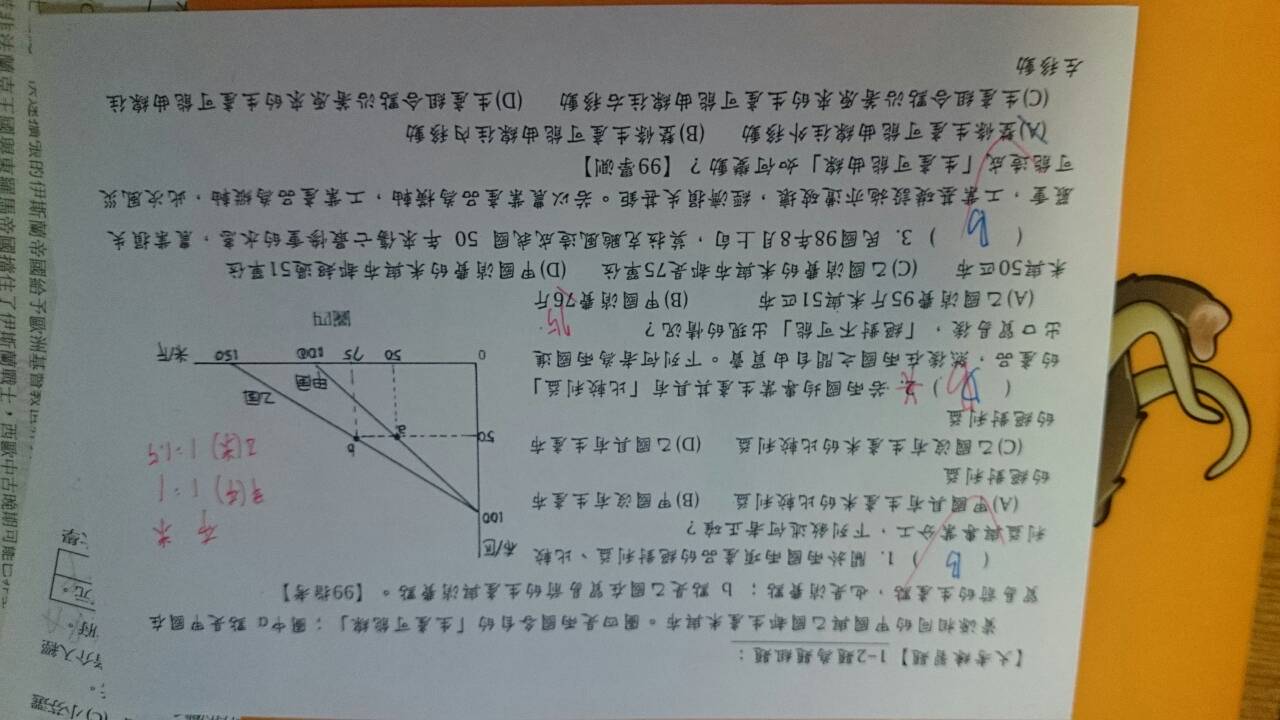 【大考練習題】1-2題為題組題：
資源相同的甲國與乙國都生產米與布。圖四是兩國各自的「生產可能線」；圖中a 點是甲國在
貿易前的生產點，也是消費點； b 點是乙國在貿易前的生產與消費點。【99指考】
( B ) 1. 關於兩國兩項產品的絕對利益、比較
利益與專業分工，下列敘述何者正確？
(A)甲國具有生產米的比較利益 (B)甲國沒有生產布
的絕對利益
(C)乙國沒有生產米的比較利益 (D)乙國具有生產布
的絕對利益
( D ) 2. 若兩國均專業生產其具有「比較利益」
的產品，然後在兩國之間自由買賣。下列何者為兩國進
出口貿易後，「絕對不可能」出現的情況？
(A)乙國消費95斤米與51匹布 (B)甲國消費76斤
75
米與50匹布 (C)乙國消費的米與布都是75單位 (D)甲國消費的米與布都超過51單位
布/匹
100
50
a
b
甲國
乙國
0
50
75
100
150
米/斤
圖四
布 米
甲(布) 1:1
乙(米) 1:1.5
( B ) 3. 民國98年8月上旬，莫拉克颱風造成我國 50 年來傷亡最慘重的水患，農業損失
嚴重，工業基礎設施亦遭破壞，經濟損失甚鉅。若以農業產品為橫軸，工業產品為縱軸，此次風災
可能造成「生產可能曲線」如何變動？【99學測】
(A)整條生產可能曲線往外移動 (B)整條生產可能曲線往內移動
(C)生產組合點沿著原來的生產可能曲線往右移動 (D)生產組合點沿著原來的生產可能曲線往
左移動